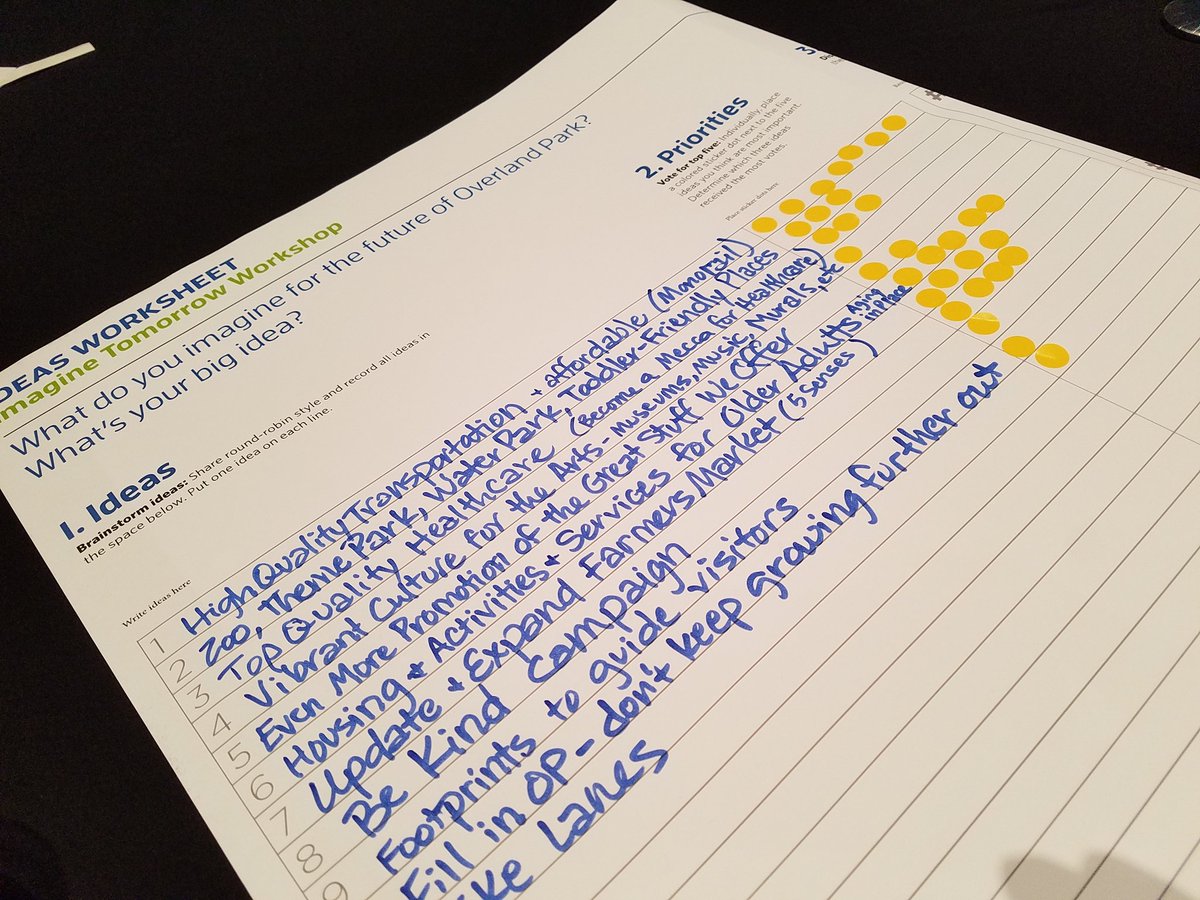 IDEAS WORKSHEET
Imagine Tomorrow Workshop
What do you imagine for the future of Overland Park?
What's your big idea?
1. Ideas
Brainstorm ideas: Share round-robin style and record all ideas in
the space below. Put one idea on each line.
Write ideas here
2. Priorities
Vote for top five: Individually, place
a colored sticker dot next to the five
ideas you think are most important.
Determine which three ideas
received the most votes.
Place sticker dots here
3
#
1 High Quality Transportation + affordable (Monorail)
2 Zoo, Theme Park, Water Park, Toddler-Friendly Places
3 Top Quality Healthcare (Become a Mecca for Healthcare)
4 Vibrant Culture for the Arts - Museums, Music, Murals, etc
5 Even More Promotion of the Great Stuff We Offer
6 Housing + Activities + Services for Older Adults Aging in Place
7 Update + Expand Farmers Market (5 senses)
8 Be Kind Campaign
9 Footprints to guide visitors
Fill in OP - don't keep growing further out
Lanes